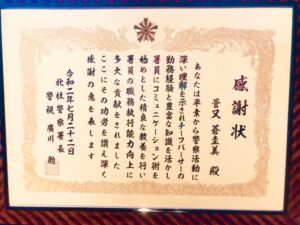 感謝状
菅又 蒼圭美 殿
あなたは平素から警察活動に
深い理解を示されチーフパーサーの
勤務経験と豊富な知識を活かし
署員にコミュニケーション術を
始めとした精良な教養を行い
署員の職務執行能力向上に
多大な貢献をされました
ここにその功労を讃え深く
感謝の意を表します
令和二年七月二十二日
北杜警察署長
警視 廣川 勉